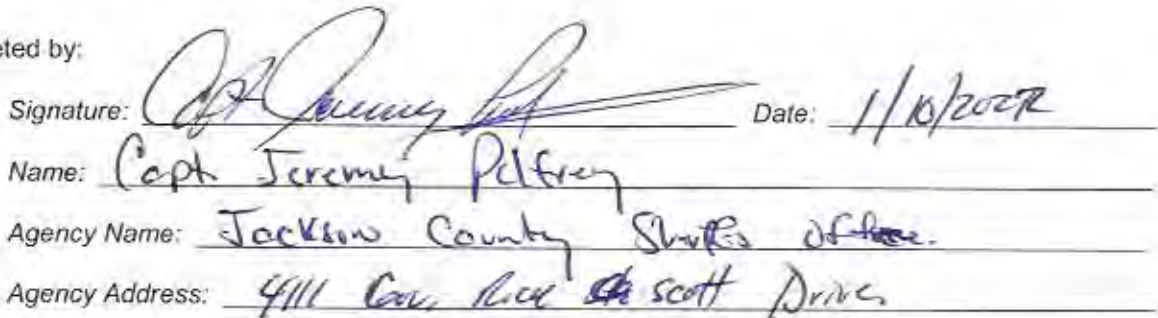 eted by:
Signature: Capt Jeremy Date: 1/10/2022
Name: Capt. Jeremy Pelfrey
Agency Name: Jackson County Sheriff's Office.
Agency Address: 4111 Gov. Rick Scott Drive